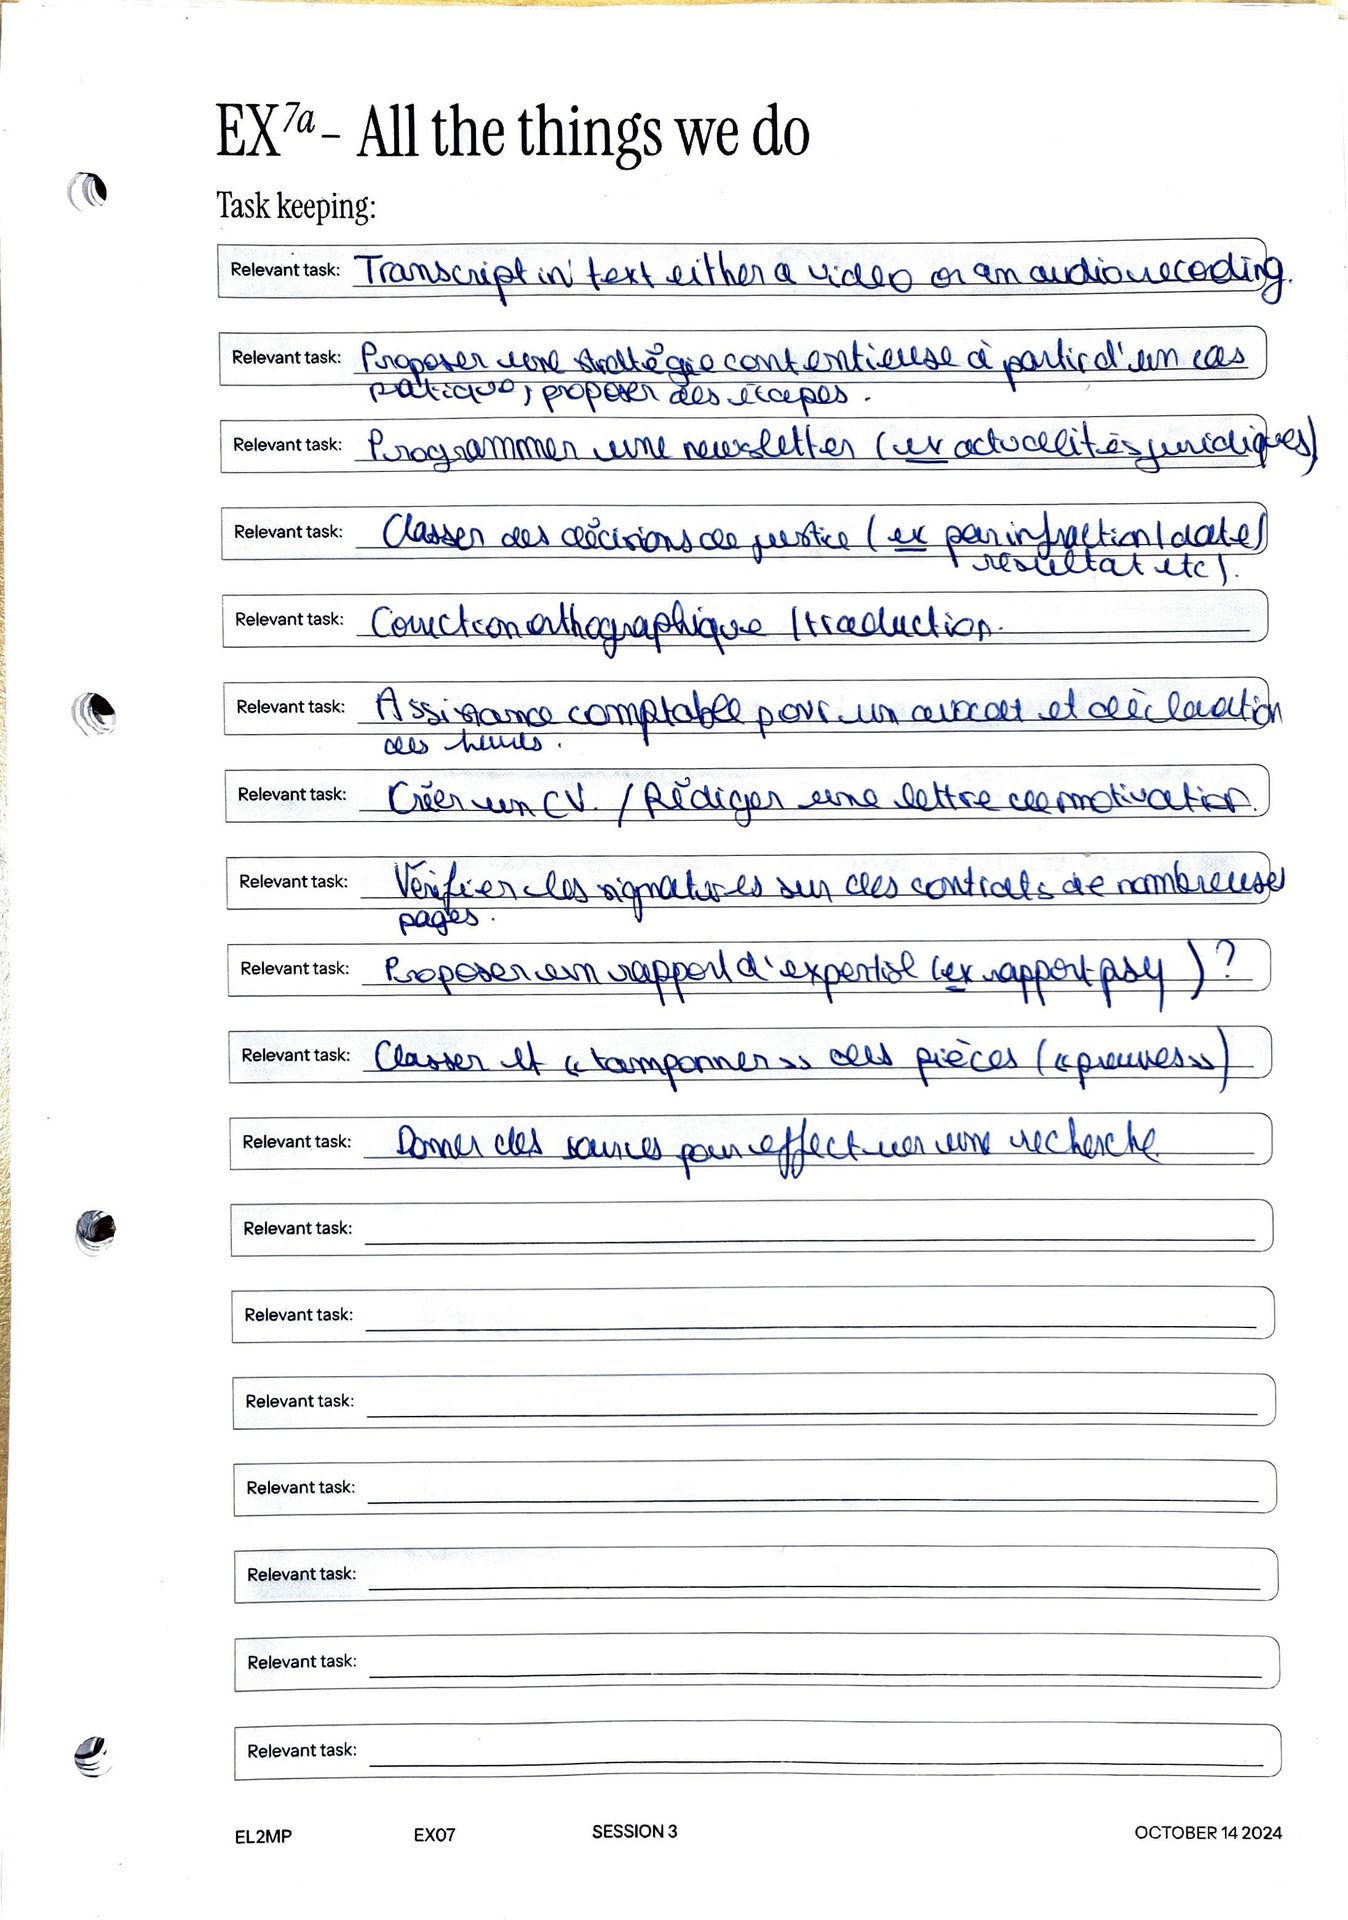 EX7a – All the things we do
Task keeping:
Relevant task: Transcript in text either a video or an audio recoding.
Relevant task: Proposer une stratégie contentieuse à partir d'un cas
pratique, proposer des étapes.
Relevant task: Programmer une newsletter (ex actualités juridiques)
Relevant task: Classer des décisions de justice (ex par infraction/date/
résultat etc).
Relevant task: Correction orthographique / traduction.
Relevant task: Assistance comptable pour un avocat et déclaration
des heures.
Relevant task: Créer un CV. / Rédiger une lettre de motivation.
Relevant task: Vérifier les signatures sur des contrats de nombreuses
pages.
Relevant task: Proposer un rapport d'expertise (ex rapport psy) ?
Relevant task: Classer et « tamponner » des pièces (« preuves »)
Relevant task: Donner des sources pour effectuer une recherche.
Relevant task:
Relevant task:
Relevant task:
Relevant task:
Relevant task:
Relevant task:
Relevant task:
EL2MP EX07 SESSION 3 OCTOBER 14 2024